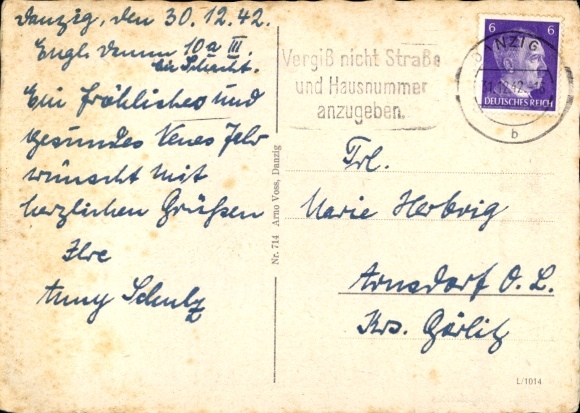 Danzig, den 30.12.42.
Engl. Damm 10a III.
bei Schacht.
Ein fröhliches und
gesundes Neues Jahr
wünscht mit
herzlichen Grüßen
Ihre
Anny Schulz
Vergiß nicht Straße
und Hausnummer
anzugeben.
6 6
DANZIG
DEUTSCHES REICH
b
Nr. 714 Arno Voss, Danzig
Frl.
Marie Herbrig
Arnsdorf O. L.
Krs. Görlitz
L/1014